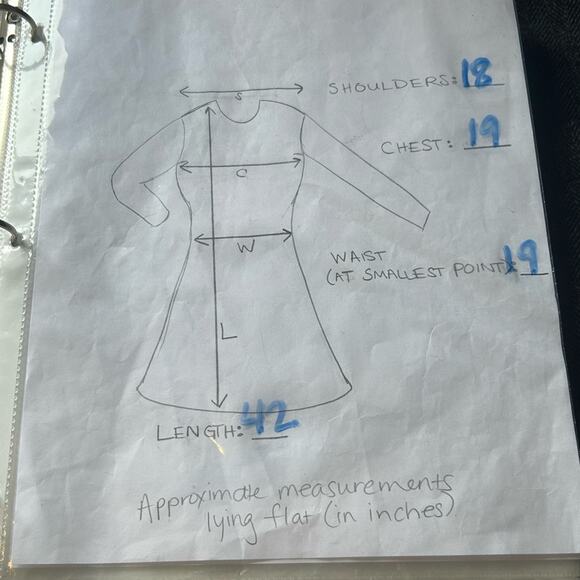 S
SHOULDERS: 18
C
CHEST: 19
W
WAIST
(AT SMALLEST POINT): 19
L
LENGTH: 42
Approximate measurements
lying flat (in inches)